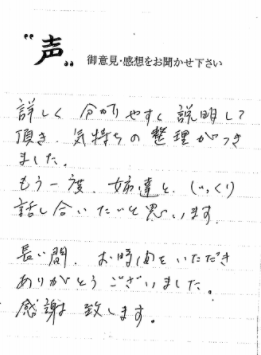 "声"
御意見・感想をお聞かせ下さい
詳しく 分かりやすく 説明して
頂き、気持ちの整理がつき
ました。
もう一度、姉達と、じっくり
話し合いたいと思います。
長い間、お時間をいただき
ありがとうございました。
感謝致します。